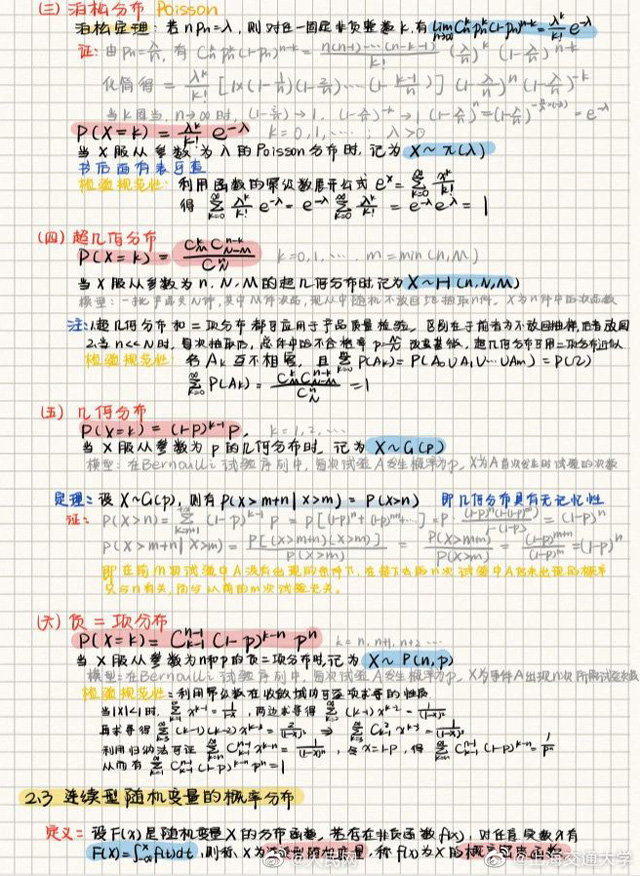 (三) 泊松分布 Poisson
泊松定理: 若 npₙ=λ, 则对任一固定非负整数 k, 有 lim_{n→∞} Cₙᵏ pₙᵏ(1-pₙ)ⁿ⁻ᵏ = λᵏ/k! e^{-λ}
证: 由 pₙ=λ/n, 有 Cₙᵏ pₙᵏ(1-pₙ)ⁿ⁻ᵏ = n(n-1)···(n-k-1)/k! (λ/n)ᵏ (1-λ/n)ⁿ⁻ᵏ
化简得 = λᵏ/k! [1×(1-1/n)(1-2/n)···(1-(k-1)/n)] (1-λ/n)ⁿ (1-λ/n)⁻ᵏ
当 k 固定, n→∞ 时,
P(X=k) = λᵏ/k! e^{-λ} k=0,1,···; λ>0
当 X 服从参数为 λ 的 Poisson 分布时, 记为 X~π(λ)
书后面有表可查
检验规范性: 利用函数的幂级数展开公式 eˣ = Σ_{k=0}^∞ xᵏ/k!
得 Σ_{k=0}^∞ λᵏ/k! e^{-λ} = e^{-λ} Σ_{k=0}^∞ λᵏ/k! = e^{-λ}e^{λ} = 1
(四) 超几何分布
P(X=k) = C_M^k C_{N-M}^{n-k} / C_N^n k=0,1,···, m=min(n,M)
当 X 服从参数为 n, N, M 的超几何分布时, 记为 X~H(n,N,M)
模型: 一批产品共N件, 其中M件次品, 现从中随机不放回地抽取n件, X为n件中的次品数
注: 1.超几何分布和二项分布都可应用于产品质量检验, 区别在于前者为不放回抽样, 后者放回
2.当 n<<N 时, 每次抽取后, 总体中的不合格率 p=M/N 改变甚微, 超几何分布可用二项分布近似
检验规范性: 各 Aₖ 互不相容, 且 ΣP(Aₖ) = P(A₀∪A₁∪···∪Aₘ) = P(Ω)
ΣP(Aₖ) = C_M^k C_{N-M}^{n-k} / C_N^n = 1
(五) 几何分布
P(X=k) = (1-p)^{k-1} p, k=1,2,···
当 X 服从参数为 p 的几何分布时, 记为 X~G(p)
模型: 在Bernoulli试验序列中, 每次试验A发生概率为p, X为A首次发生时试验的次数
定理: 设 X~G(p), 则有 P(X>m+n|X>m) = P(X>n) 即几何分布具有无记忆性
证: P(X>n) = Σ (1-p)^{k-1} p = p[(1-p)ⁿ+(1-p)ⁿ⁺¹+···] = = (1-p)ⁿ
P(X>m+n|X>m) = P[(X>m+n)(X>m)]/P(X>m) = P(X>m+n)/P(X>m) = (1-p)^{m+n}/(1-p)^m = (1-p)ⁿ
即在前m次试验中A没有出现的条件下, 在接下去的n次试验中A仍未出现的概率
只与n有关, 而与以前的m次试验无关.
(六) 负二项分布
P(X=k) = C_{k-1}^{n-1} (1-p)^{k-n} pⁿ k=n, n+1, n+2···
当 X 服从参数为n和p的负二项分布时, 记为 X~P(n,p)
模型: 在Bernoulli试验序列中, 每次试验A发生概率为p, X为事件A出现n次所需试验次数
检验规范性: 利用幂级数在收敛域内可逐项求导的性质
当|x|<1时, Σ x^{k-1} = 1/(1-x), 两边求导得 Σ (k-1)x^{k-2} = 1/(1-x)²
再求导得 Σ (k-1)(k-2)x^{k-3} = 2/(1-x)³ ⇒ Σ C_{k-1}² x^{k-3} = 1/(1-x)³
利用归纳法可证 Σ C_{k-1}^{n-1} x^{k-n} = 1/(1-x)ⁿ, 令 x=1-p, 得 Σ C_{k-1}^{n-1} (1-p)^{k-n} = 1/pⁿ
从而有 Σ C_{k-1}^{n-1} (1-p)^{k-n} pⁿ = 1
2.3 连续型随机变量的概率分布
定义: 设F(x)是随机变量X的分布函数, 若存在非负函数f(x), 对任意实数x有
F(x)=∫_{-∞}^x f(t)dt, 则称X为连续型随机变量, 称f(x)为X的概率密度函数
@人民网 @上海交通大学